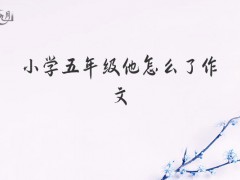 小学五年级他怎么了作
文